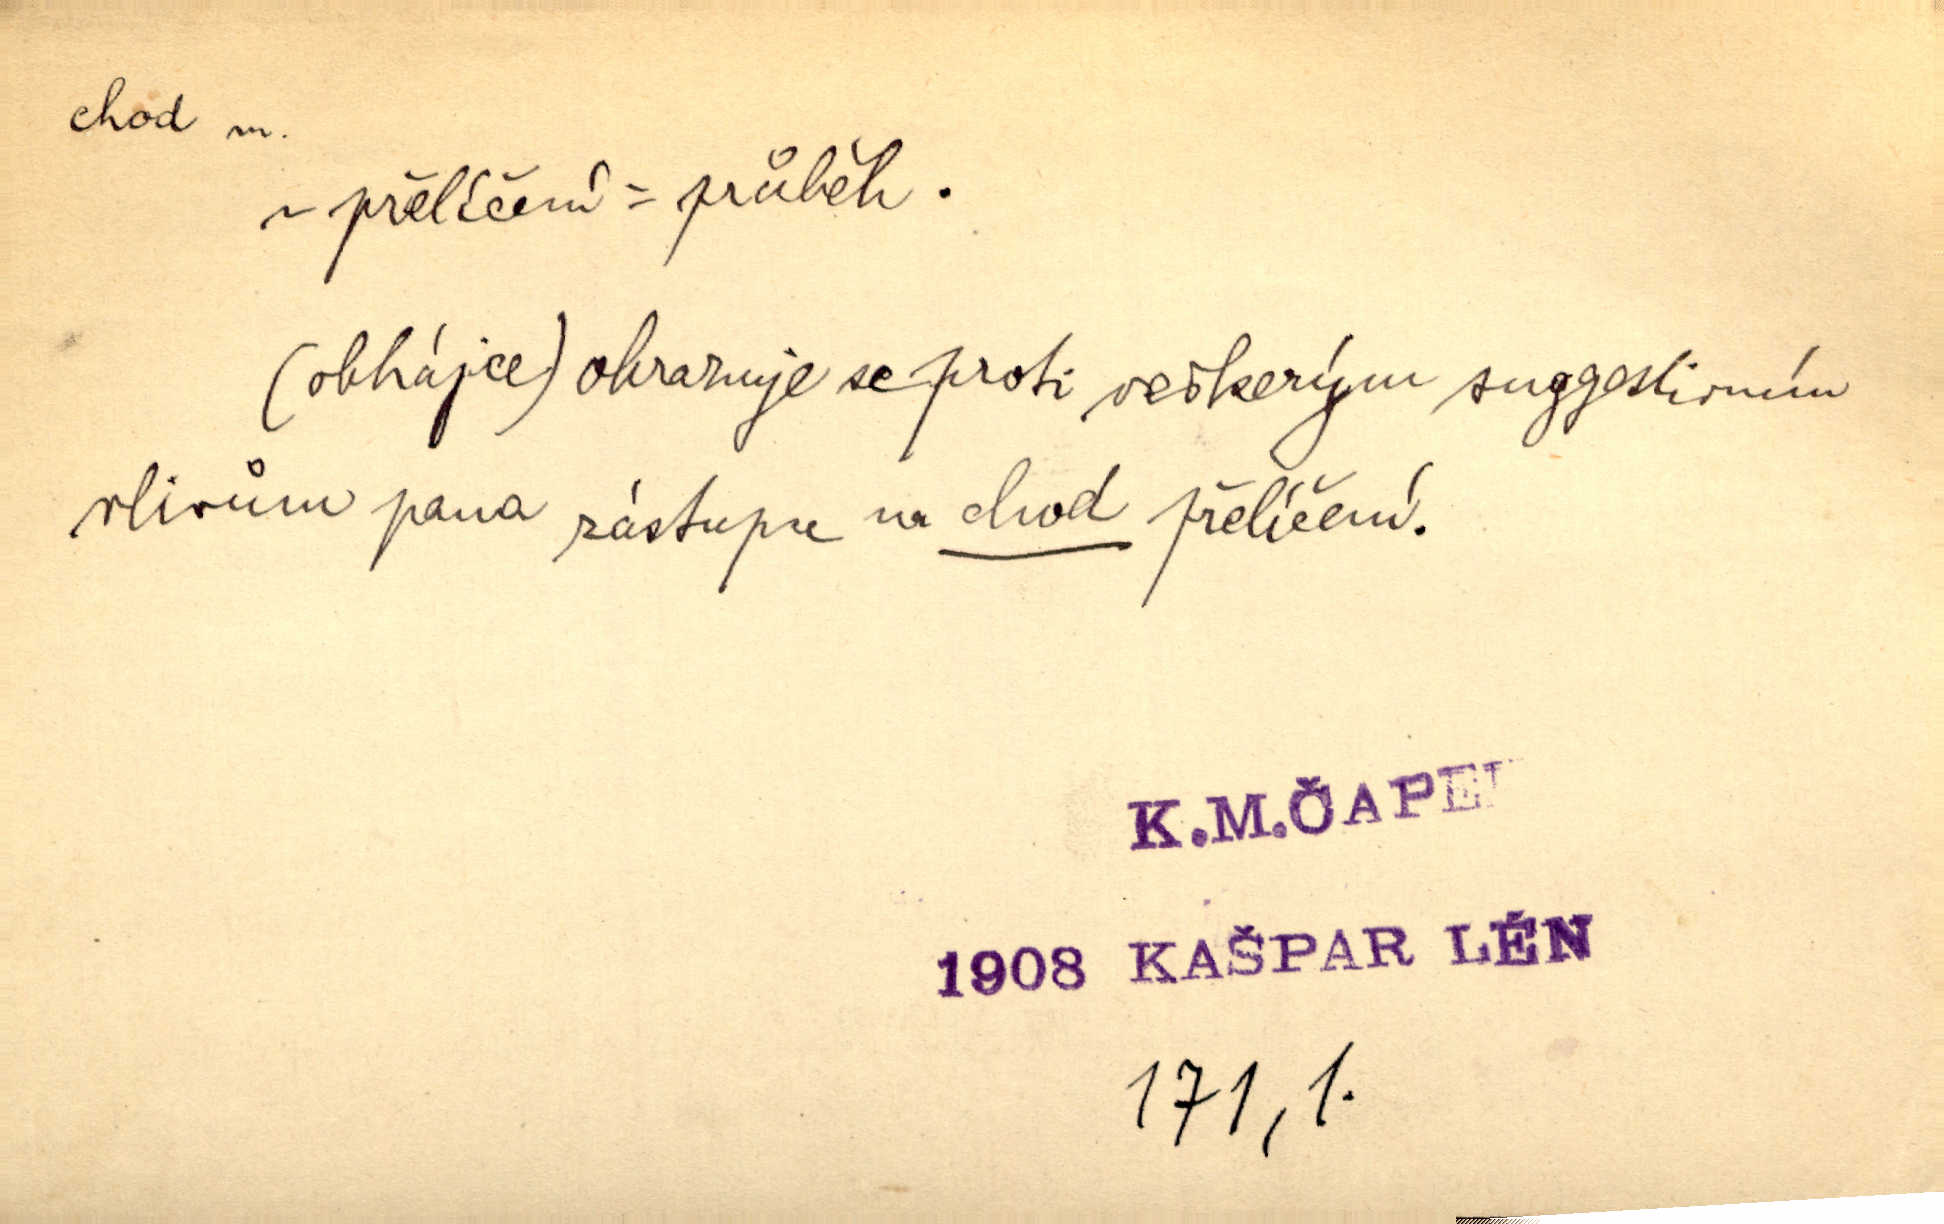 chod m.
~ přelíčení = průběh.
(obhájce) ohrazuje se proti veškerým suggestivním
vlivům pana zástupce na chod přelíčení.
K.M.ČAPEK
1908 KAŠPAR LÉN
171, 1.